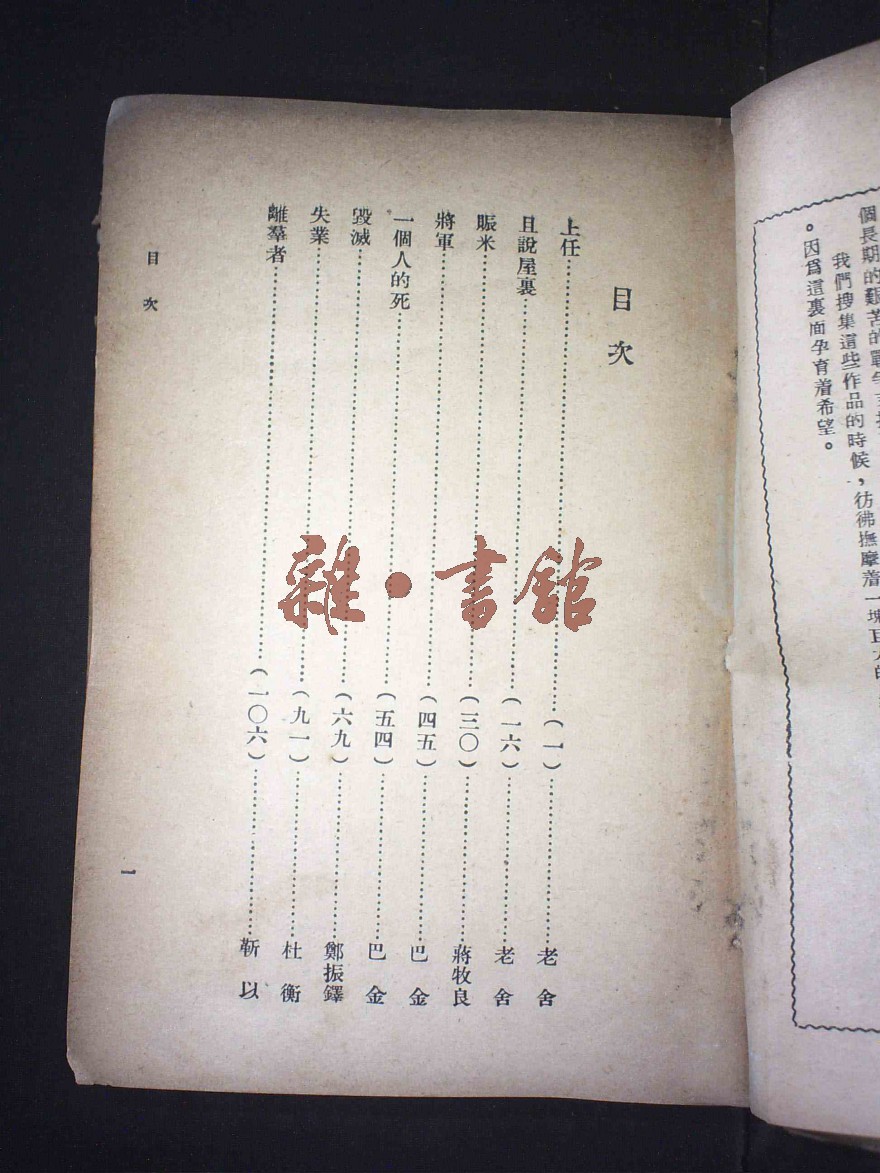 個長期的艱苦的戰爭
我們搜集這些作品的時候，彷彿撫摩着一塊巨大的
。因爲這裏面孕育着希望。
目次
上任……（一）……老舍
且說屋裏……（一六）……老舍
賑米……（三〇）……蔣牧良
將軍……（四五）……巴金
一個人的死……（五四）……巴金
毀滅……（六九）……鄭振鐸
失業……（九一）……杜衡
離羣者……（一〇六）……靳以
目次
一
雜·書館